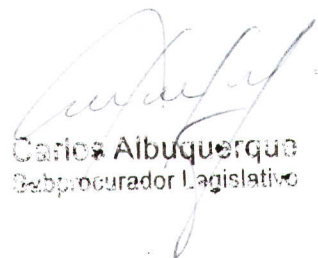 Carlos Albuquerque
Subprocurador Legislativo